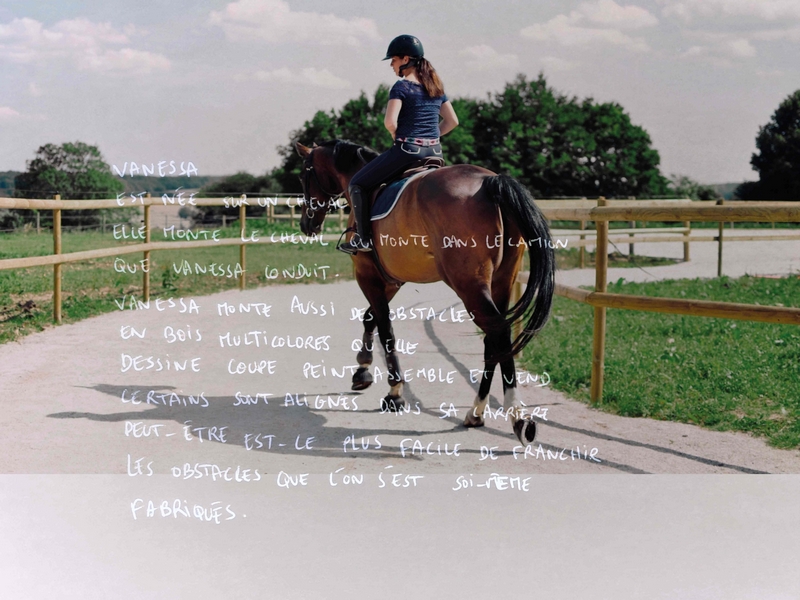 VANESSA
EST NÉE SUR UN CHEVAL
ELLE MONTE LE CHEVAL QUI MONTE DANS LE CAMION
QUE VANESSA CONDUIT.
VANESSA MONTE AUSSI DES OBSTACLES
EN BOIS MULTICOLORES QU'ELLE
DESSINE COUPE PEINT ASSEMBLE ET VEND
CERTAINS SONT ALIGNÉS DANS SA CARRIÈRE
PEUT-ÊTRE EST-CE PLUS FACILE DE FRANCHIR
LES OBSTACLES QUE L'ON S'EST SOI-MÊME
FABRIQUÉS.